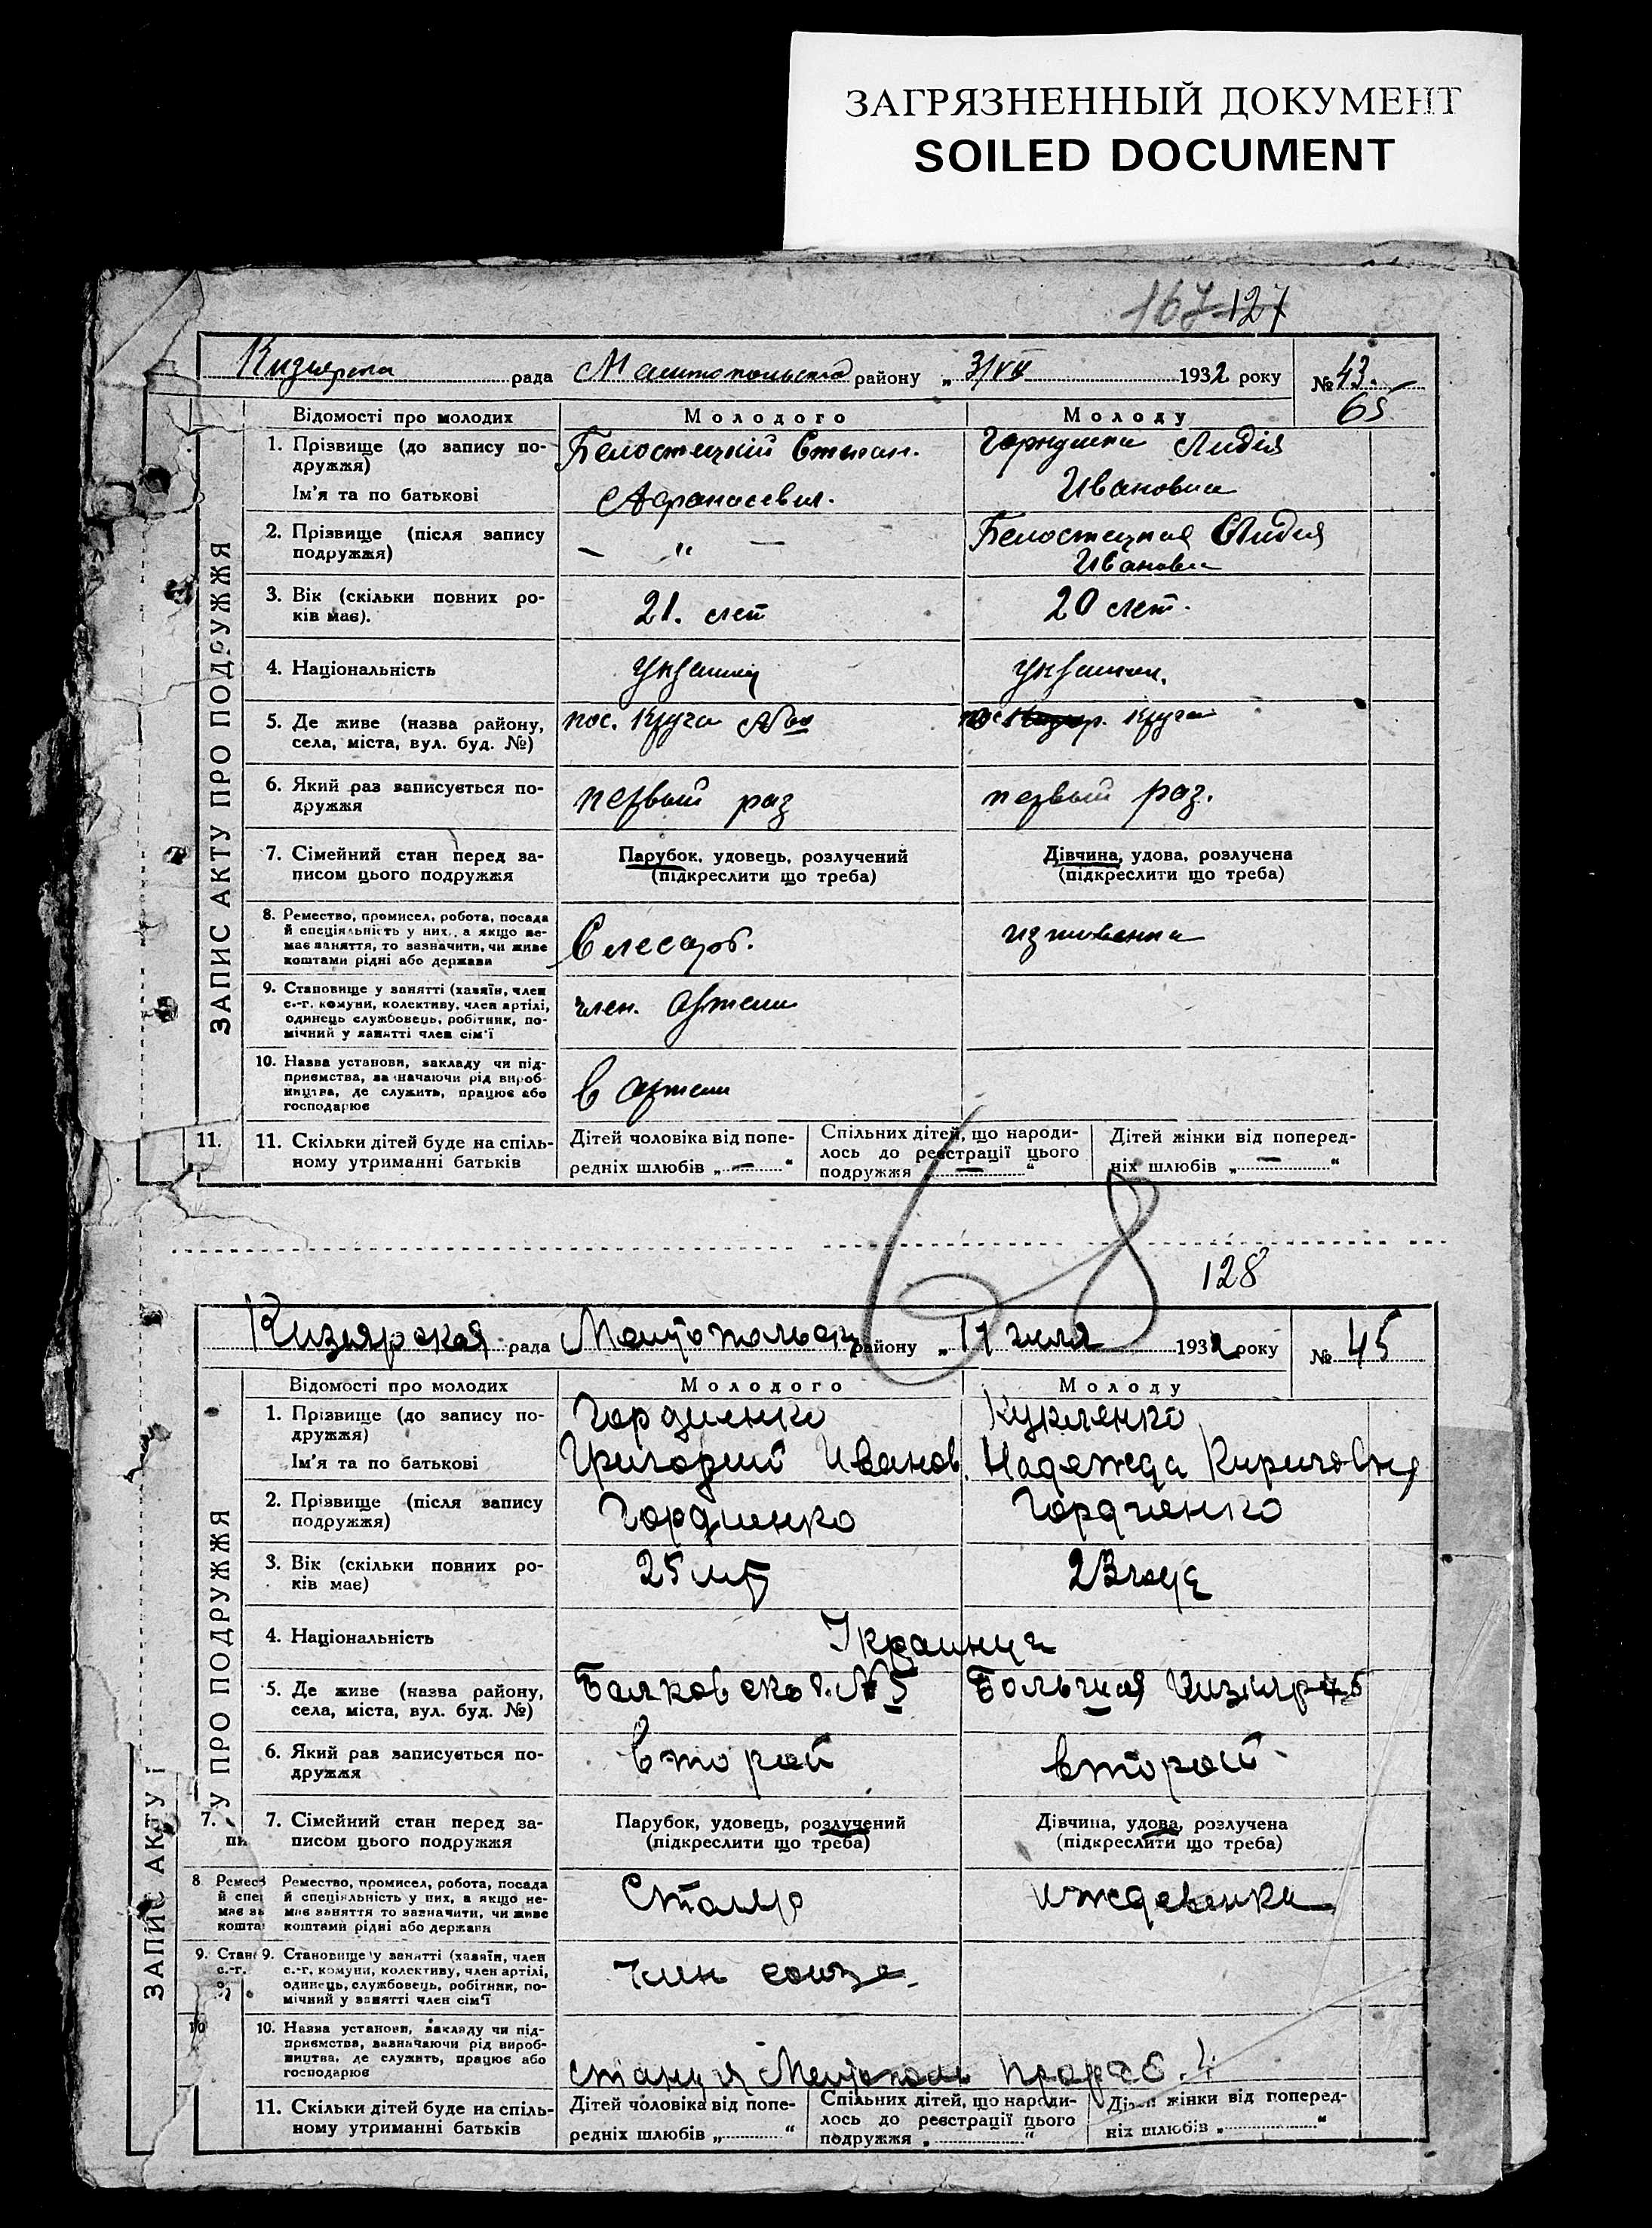 ЗАГРЯЗНЕННЫЙ ДОКУМЕНТ
SOILED DOCUMENT
167 127
рада района району „ 3/VII 1932 року № 43.
65
ЗАПИС АКТУ ПРО ПОДРУЖЖЯ
Відомості про молодих Молодого Молоду
1. Прізвище (до запису по-
дружжя)
Белостецкий Степан.
Лидія
Ім'я та по батькові
Афанасевич.
Ивановна
2. Прізвище (після запису
подружжя)
— „ —
Белостецкая Лидия
Ивановн
3. Вік (скільки повних ро-
ків має).
21. лет
20 лет.
4. Національність
5. Де живе (назва району,
села, міста, вул. буд. №)
пос. Круча
Круча
6. Який раз записується по-
дружжя
первый раз
первый раз.
7. Сімейний стан перед за-
писом цього подружжя
Парубок, удовець, розлучений
(підкреслити що треба)
Дівчина, удова, розлучена
(підкреслити що треба)
8. Ремество, промисел, робота, посада
й спеціяльність у них, а якщо не-
має заняття, то зазначити, чи живе
коштами рідні або держави
Слесарь.
9. Становище у занятті (хазяїн, член
с.-г. комуни, колективу, член артілі,
одинець службовець, робітник, по-
мічний у занятті член сім'ї
член. артели
10. Назва установи, закладу чи під-
приємства, зазначаючи рід вироб-
ництва, де служить, працює або
господарює
в артели
11. 11. Скільки дітей буде на спіль-
ному утриманні батьків
Дітей чоловіка від попе-
редніх шлюбів „ — “
Спільних дітей, що народи-
лось до реєстрації цього
подружжя „ — “
Дітей жінки від поперед-
ніх шлюбів „ — “
68
128
Кизиярская рада Мелитопольск району „ 17 июля 1932 року № 45
ЗАПИС АКТУ П
У ПРО ПОДРУЖЖЯ
Відомості про молодих Молодого Молоду
1. Прізвище (до запису по-
дружжя)
Гордиенко
Кукленко
Ім'я та по батькові
Григорий Иванов. Надежда Кириловна
2. Прізвище (після запису
подружжя)
Гордиенко
Гордиенко
3. Вік (скільки повних ро-
ків має)
25 лет
23 года
4. Національність
Украинци
5. Де живе (назва району,
села, міста, вул. буд. №)
№ 5
Большая Кизияр
6. Який раз записується по-
дружжя
второй
второй
7.
пи
7. Сімейний стан перед за-
писом цього подружжя
Парубок, удовець, розлучений
(підкреслити що треба)
Дівчина, удова, розлучена
(підкреслити що треба)
8 Ремест
й спец
має за
кошта
Ремество, промисел, робота, посада
й спеціяльність у них, а якщо не-
має заняття то зазначити, чи живе
коштами рідні або держави
Столяр
иждевенка
9. Стан
с.-г.
9. Становище у занятті (хазяїн, член
с.-г. комуни, колективу, член артілі,
одинець, службовець, робітник, по-
мічний у занятті член сім'ї
член союза
10
10. Назва установи, закладу чи під-
приємства, зазначаючи рід вироб-
ництва, де служить, працює або
господарює
станция Мелитополь
11. Скільки дітей буде на спіль-
ному утриманні батьків
Дітей чоловіка від попе-
редніх шлюбів „ “
Спільних дітей, що народи-
лось до реєстрації цього
подружжя „ “
Дітей жінки від поперед-
ніх шлюбів „ “